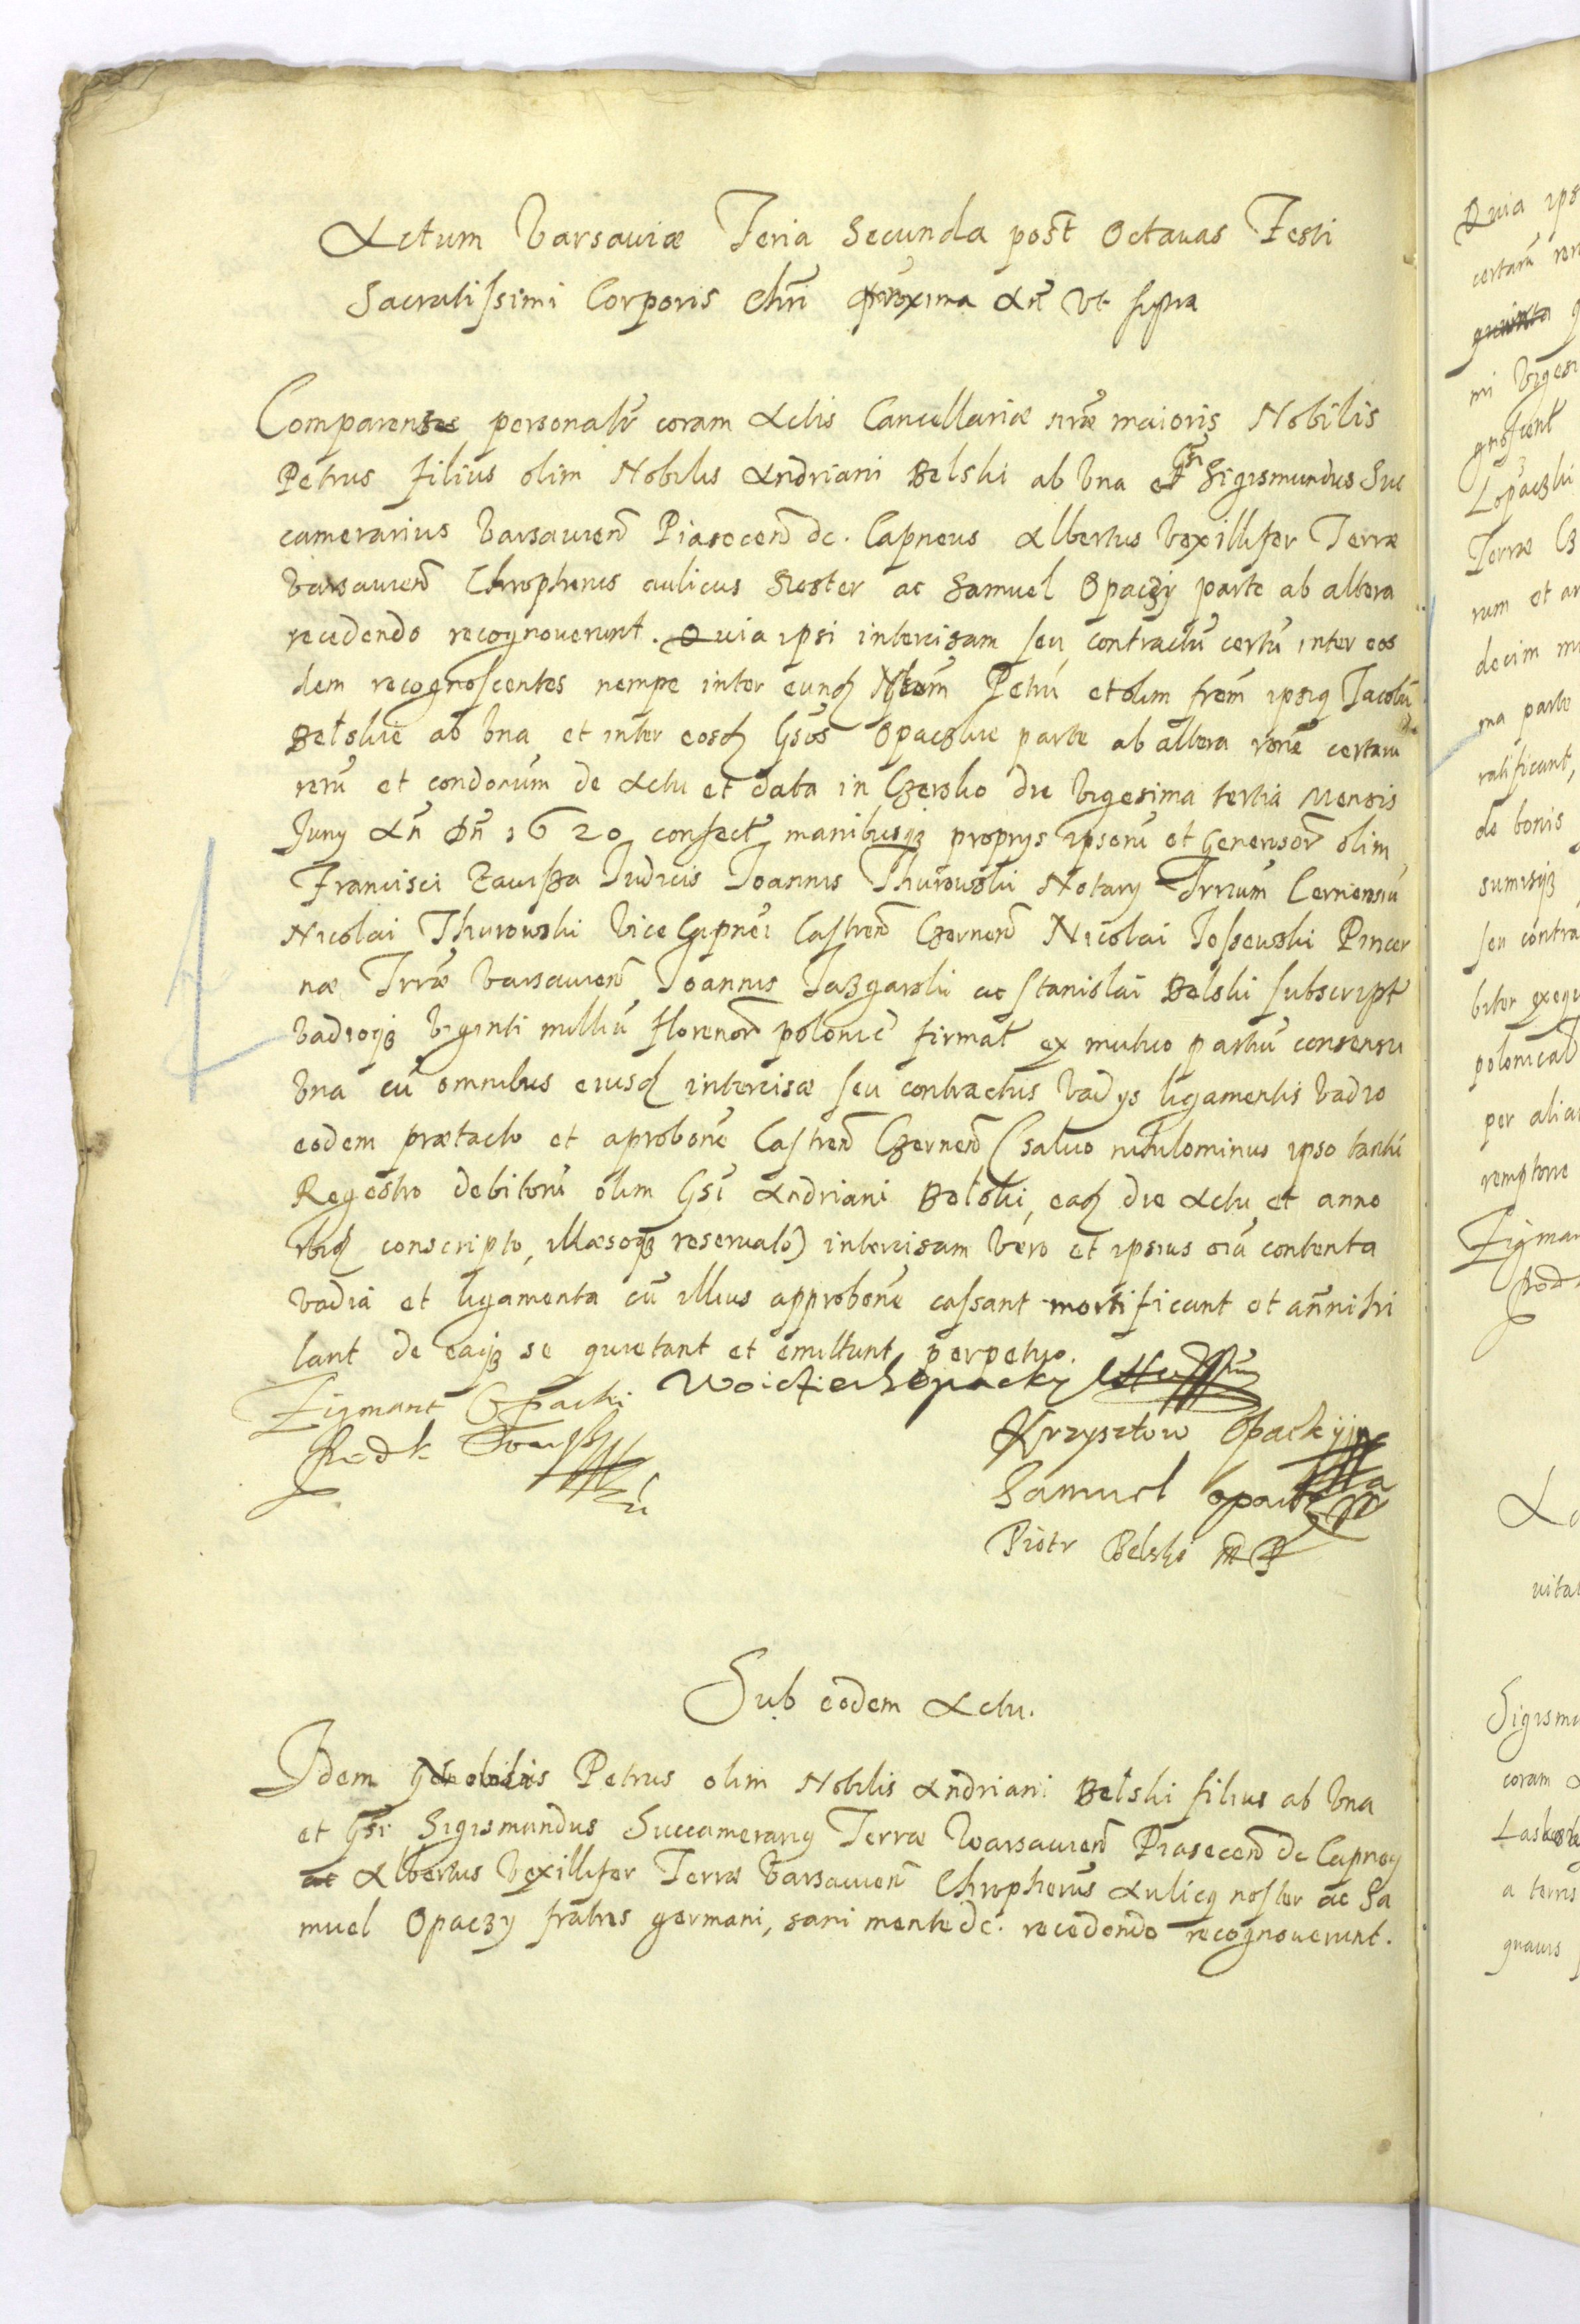 Actum Varsaviæ Feria Secunda post Octavas Festi
Sacratissimi Corporis Chri proxima An Vt supra
Comparentes personalr coram Actis Cancellariæ nræ maioris Nobilis
Petrus filius olim Nobilis Andriani Belski ab Vna et Gsi Sigismundus Suc
camerarius Varsavien Piasecen dc. Capneus Albertus Vexillifer Terræ
Varsavien Chrophorus aulicus Noster ac Samuel Opaczy parte ab altera
recedendo recognoverunt. Quia ipsi intercisam seu contractu certu inter eos
dem recognoscentes nempe inter eund Petru et olim frem ipsiq Jacobu
Belskie ab Vna et inter eosd Gsos Opaczkie parte ab altera rone certaru
reru et condorum de Actu et data in Czersko die Vigesima tertia Mensis
Juny An Dn 1620 confect manibusq proprys ipsoru et Generosor olim
Francisci Zawisza Judicis Joannis Thurowski Notary Trrum Cernensiu
Nicolai Thurowski Vice Capnei Castren Czernen Nicolai Jossewski Pincer
næ Trræ Varsavien Joannis Jazgarski ac Stanislai Belski subscript
Vadioq Viginti milliu florenor polonic firmat ex mutuo partiu consensu
Vna cu omnibus eiusd intercisæ seu contractus Vadys ligamentis Vadio
eodem prætacto et aprobone Castren Czernen (salvo nihilominus ipso tantu
Regestro debitoru olim Gsi Andriani Belski, ead die Actu et anno
ibid conscripto, illæsoq reservato) intercisam Vero et ipsius oia contenta
Vadia et ligamenta cu illius approbone cassant mortificant et annihi
lant de eaq se quietant et emittunt perpetuo.
Zigmant Opacki Woiciech Opacky
Krzysztow Opackyj
Samuel Opacky
Piotr Belski
Sub eodem Actu.
Idem Petrus olim Nobilis Andriani Belski filius ab Vna
et Gsi Sigismundus Succamerariq Terræ Warsavien Piasecen dc Capneq
ac Albertus Vexillifer Terræ Varsavien Chrophorus Auliciq noster ac Sa
muel Opaczy fratres germani, sani mente dc. recedendo recognoverunt.
Quia ips
certaru rer
quinta
mi Viges
gnoscent
Lopaczki
Terræ Cz
rum et an
decim mi
ma parte
ratificant,
de bonis
sumisq
seu contra
biter exequ
polonical
per alia
remptione
Zigman
Sigismu
coram
a terris